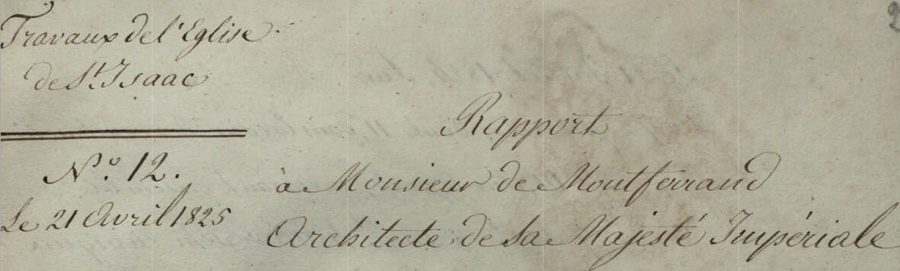 Travaux de l'Eglise
de St. Isaac
No. 12.
Le 21 Avril 1825
Rapport
à Monsieur de Montferrand
Architecte de Sa Majesté Impériale